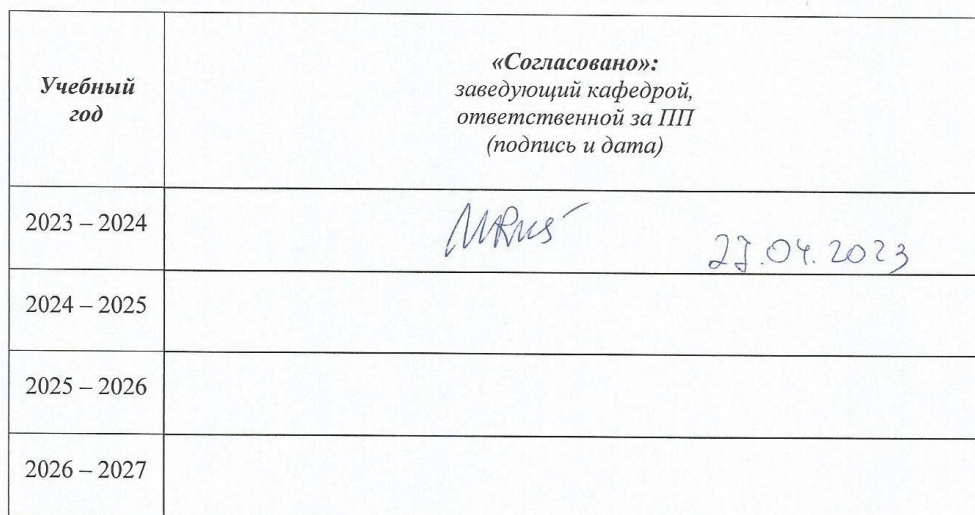 Учебный
год
«Согласовано»:
заведующий кафедрой,
ответственной за ПП
(подпись и дата)
2023 – 2024
.04.2023
2024 – 2025
2025 – 2026
2026 – 2027